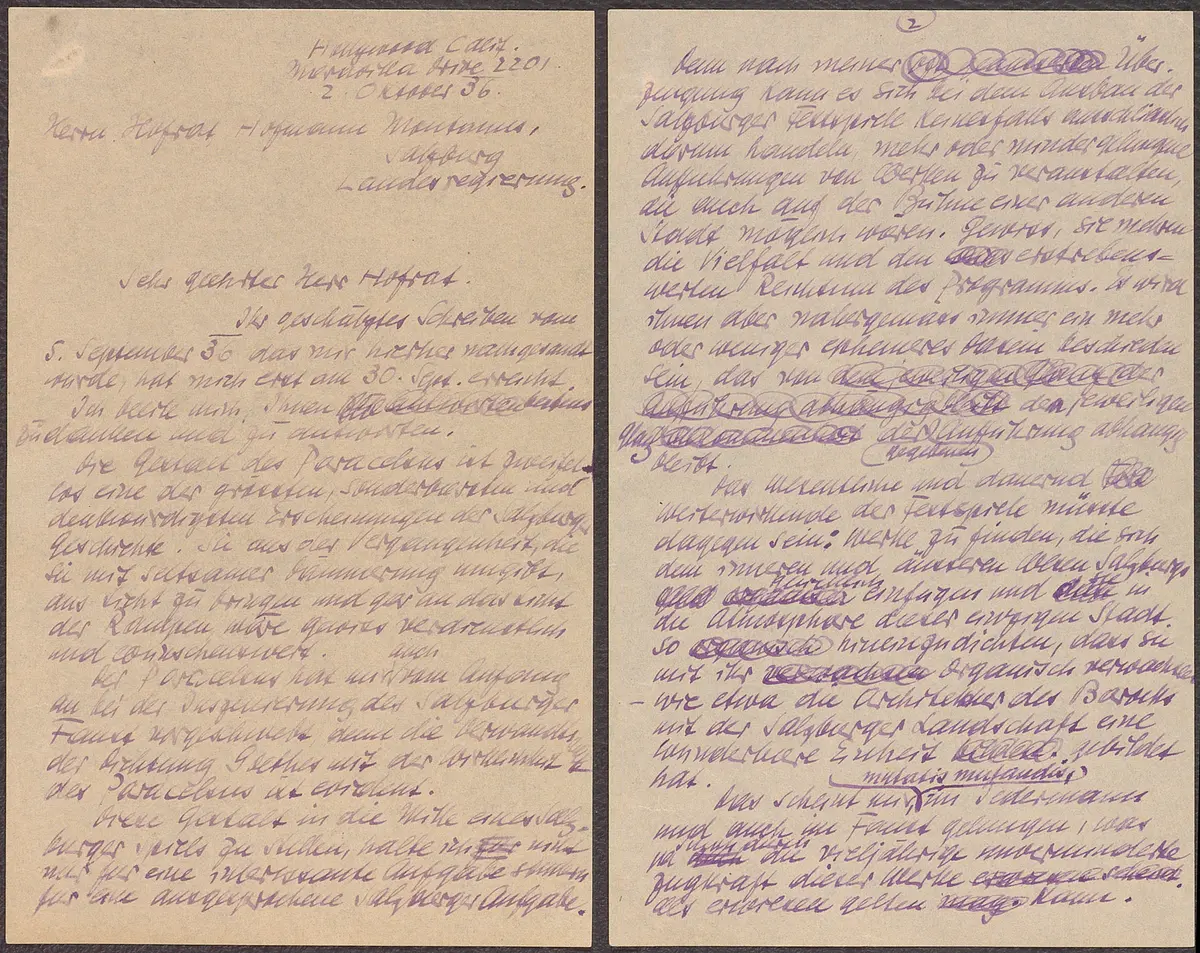 Hollywood Calif.
Maravilla Drive 2201.
2. Oktober 36.
Herrn Hofrat Hofmann Montanus,
Salzburg
Landesregierung.
Sehr geehrter Herr Hofrat.
Ihr geschätztes Schreiben vom
5. September 36 das mir hierher nachgesandt
wurde, hat mich erst am 30. Sept. erreicht.
Ich beeile mich, Ihnen bestens
zu danken und zu antworten.
Die Gestalt des Paracelsus ist zweifel-
los eine der grössten, sonderbarsten und
denkwürdigsten Erscheinungen der Salzburger
Geschichte. Sie aus der Vergangenheit, die
sie mit seltsamer Dämmerung umgibt,
ans Licht zu bringen und gar an das Licht
der Rampen, wäre gewiss verdienstlich
und wünschenswert.
Der Paracelsus hat mir auch vom Anfang
an bei der Inszenierung des Salzburger
Faust vorgeschwebt denn die Verwandtschaft
der Dichtung Goethes mit der Wirklichkeit
des Paracelsus ist evident.
Diese Gestalt in die Mitte eines Salz-
burger Spiels zu stellen, halte ich nicht
nur für eine interessante Aufgabe sondern
für eine ausgesprochene Salzburger Aufgabe.
2
Denn nach meiner Über-
zeugung kann es sich bei dem Ausbau der
Salzburger Festspiele keinesfalls ausschliesslich
darum handeln, mehr oder minder gelungene
Aufführungen von Werken zu veranstalten,
die auch auf der Bühne einer anderen
Stadt möglich wären. Gewiss, sie mehren
die Vielfalt und den erstrebens-
werten Reichtum des Programms. Es wird
ihnen aber naturgemäss immer ein mehr
oder weniger ephemeres Dasein beschieden
sein, das von dem jeweiligen Glanz der
Aufführung abhängig bleibt den jeweiligen
der Aufführung abhängig
gegebenen
bleibt.
Das Wesentliche und dauernd
weiterwirkende der Festspiele müsste
dagegen sein: Werke zu finden, die sich
dem inneren und äusseren Wesen Salzburgs
organisch einfügen und in
die Atmosphäre dieser einzigen Stadt
so organisch hineinzudichten, dass sie
mit ihr verwachsen organisch verwachsen
– wie etwa die Architektur des Barocks
mit der Salzburger Landschaft eine
wunderbare Einheit gebildet
hat.
mutatis mutandis,
Das scheint mir im Jedermann
und auch im Faust gelungen, was
ja durch die vieljährige unverminderte
Zugkraft dieser Werke
als erwiesen gelten mag. kann.